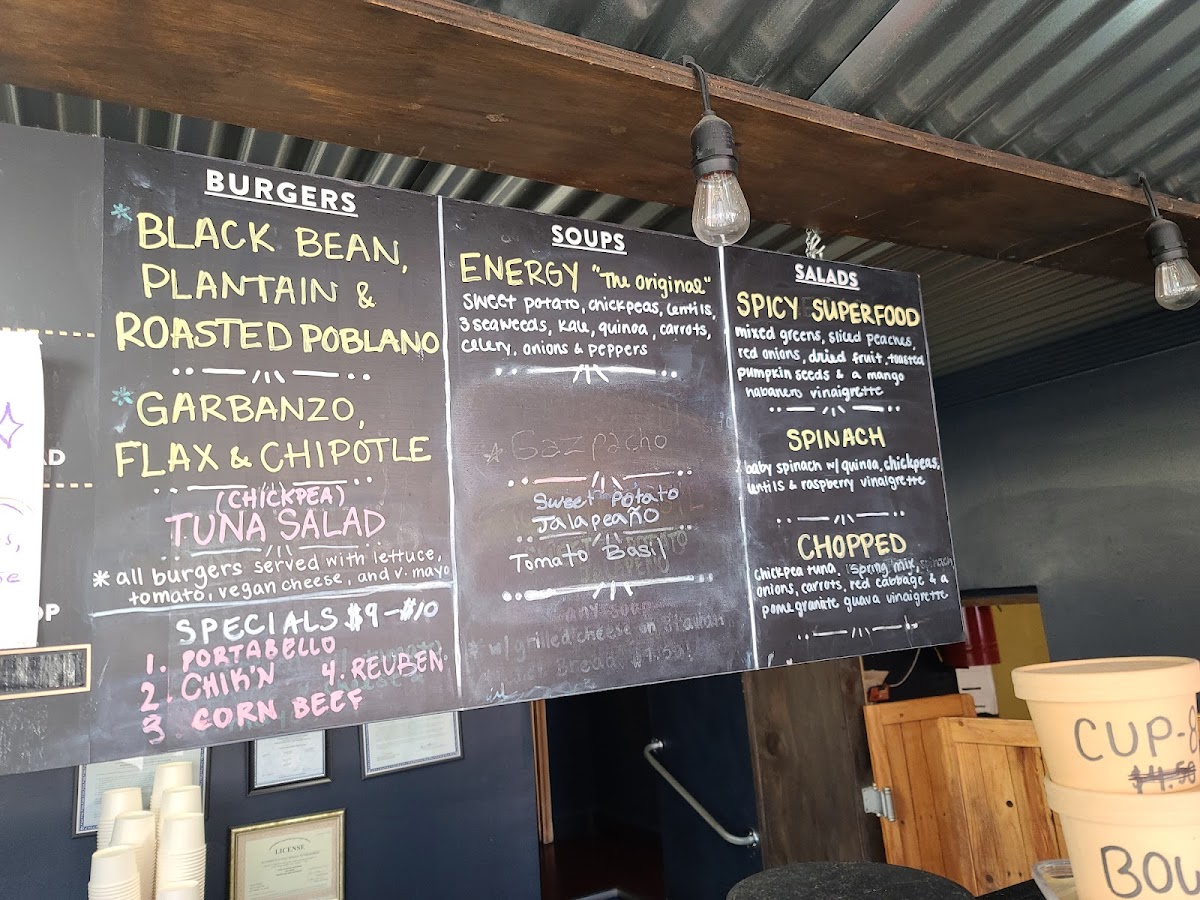 BURGERS
*BLACK BEAN,
PLANTAIN &
ROASTED POBLANO
*GARBANZO,
FLAX & CHIPOTLE
(CHICKPEA)
TUNA SALAD
*all burgers served with lettuce,
tomato, vegan cheese, and v. mayo
SPECIALS $9-$10
1. PORTABELLO
2. CHIK'N 4. REUBEN
3. CORN BEEF
SOUPS
ENERGY "The original"
sweet potato, chickpeas, lentils,
3 seaweeds, kale, quinoa, carrots,
celery, onions & peppers
*Gazpacho
Sweet Potato
Jalapeaño
Tomato Basil
ANY SOUP
* w/ grilled cheese on
Bread
SALADS
SPICY SUPERFOOD
mixed greens, sliced peaches,
red onions, dried fruit, toasted
pumpkin seeds & a mango
habanero vinaigrette
SPINACH
baby spinach w/ quinoa, chickpeas,
lentils & raspberry vinaigrette
CHOPPED
chickpea tuna, spring mix, spinach
onions, carrots, red cabbage & a
pomegranate guava vinaigrette
OP
LICENSE
CUP-8
$4.50
BOW